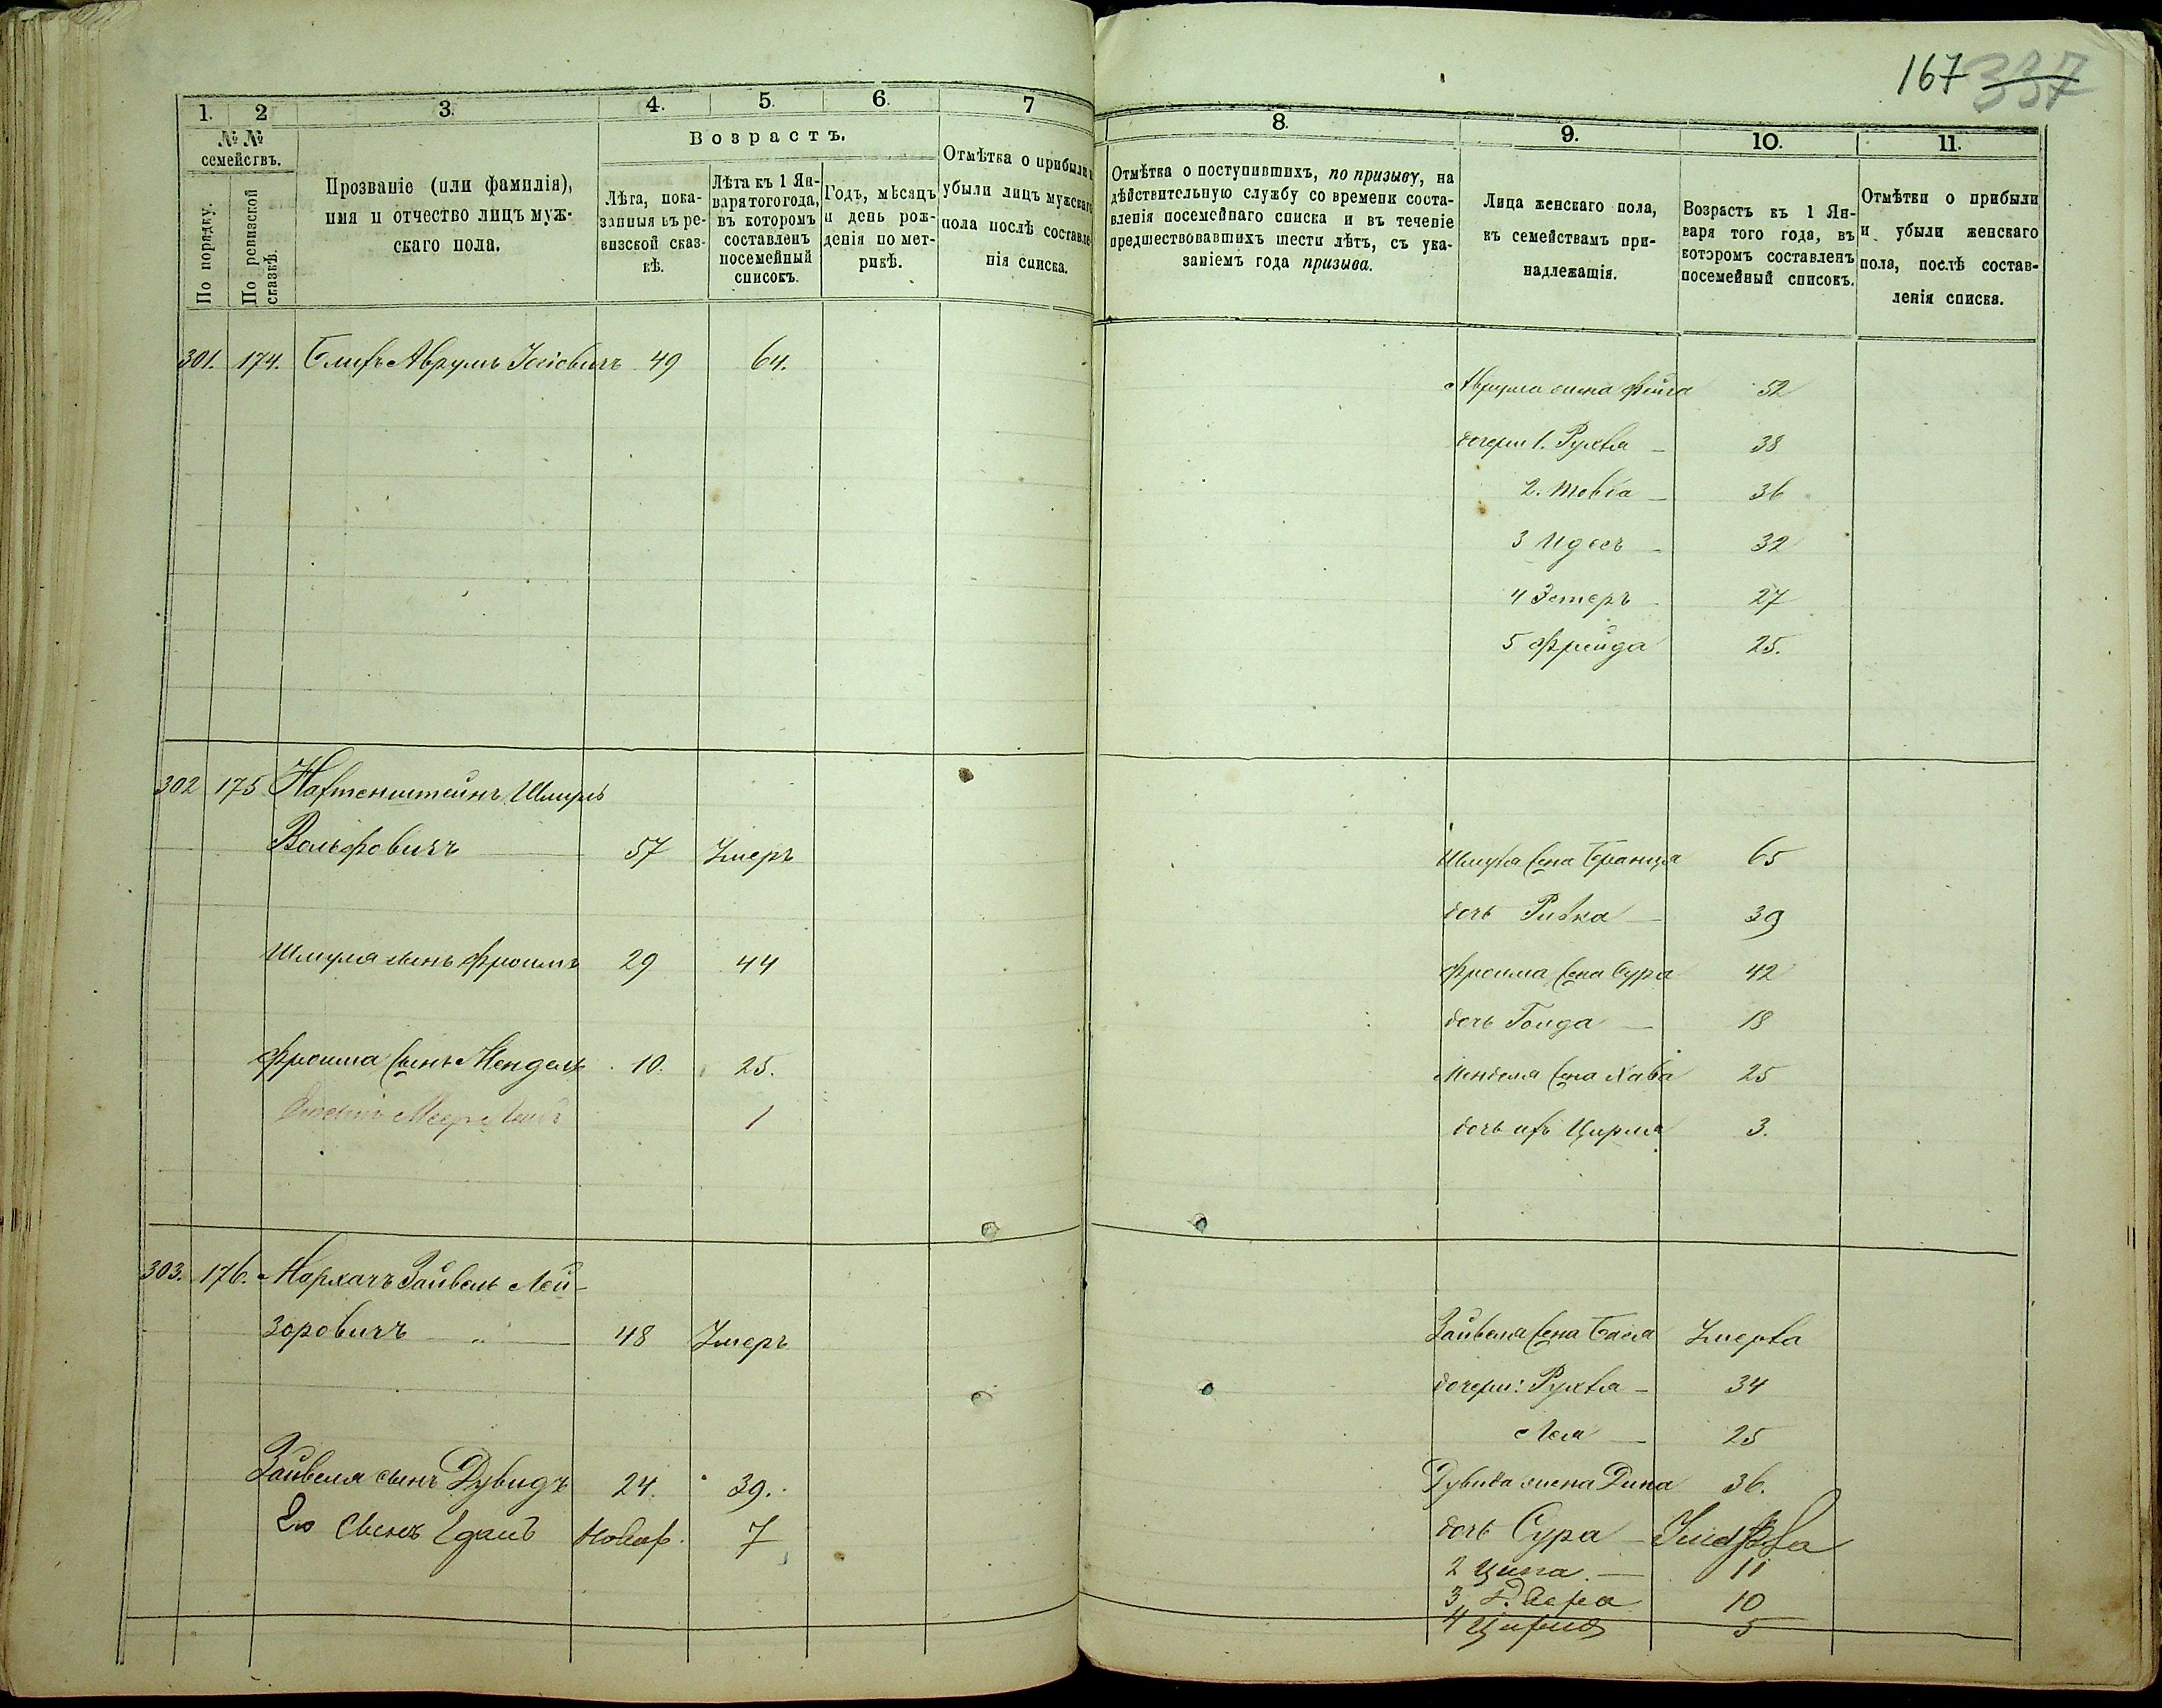 167 337
1. 2 3. 4. 5. 6. 7
№ № семействъ.
По порядку.
По ревизской сказкѣ.
Прозваніе (или фамилія),
имя и отчество лицъ муж-
скаго пола.
Возрастъ.
Лѣта, пока-
занныя въ ре-
визской сказ-
кѣ.
Лѣта къ 1 Ян-
варя того года,
въ которомъ
составленъ
посемейный
списокъ.
Годъ, мѣсяцъ
и день рож-
денія по мет-
рикѣ.
Отмѣтка о прибыли и
убыли лицъ мужскаго
пола послѣ составле-
нія списка.
8. 9. 10. 11.
Отмѣтка о поступившихъ, по призыву, на
дѣйствительную службу со времени соста-
вленія посемейнаго списка и въ теченіе
предшествовавшихъ шести лѣтъ, съ ука-
заніемъ года призыва.
Лица женскаго пола,
къ семействамъ при-
надлежащія.
Возрастъ къ 1 Ян-
варя того года, въ
которомъ составленъ
посемейный списокъ.
Отмѣтки о прибыли
и убыли женскаго
пола, послѣ состав-
ленія списка.
301. 174. Аврумъ Іосіовичъ 49 64.
Аврума жена Фейга 52
дочери 1. Рухля 38
2. Товба 36
3 Идесъ 32
4 Эстеръ 27
5 Фрейда 25.
302 175 Шмуль
Вольфовичъ 57 Умеръ
Шмуля жена Бранца 65
дочь Ривка 39
Шмуля сынъ Фроимъ 29 44
Фроима жена Сура 42
дочь Голда 18
Фроима сынъ Мендель 10. 25.
Менделя жена Хава 25
1
дочь ихъ Цирля 3.
303. 176. Зайвель Лей-
зоровичъ 48 Умеръ
Зайвеля жена Бася Умерла
дочери: Рухля 34
Лея 25
Зайвеля сынъ Дувидъ 24. 39.
Дувида жена Дина 36.
Его сынъ новор. 7
дочь Сура Умерла
2 Ципа 11
3 10
4 Цирля 5